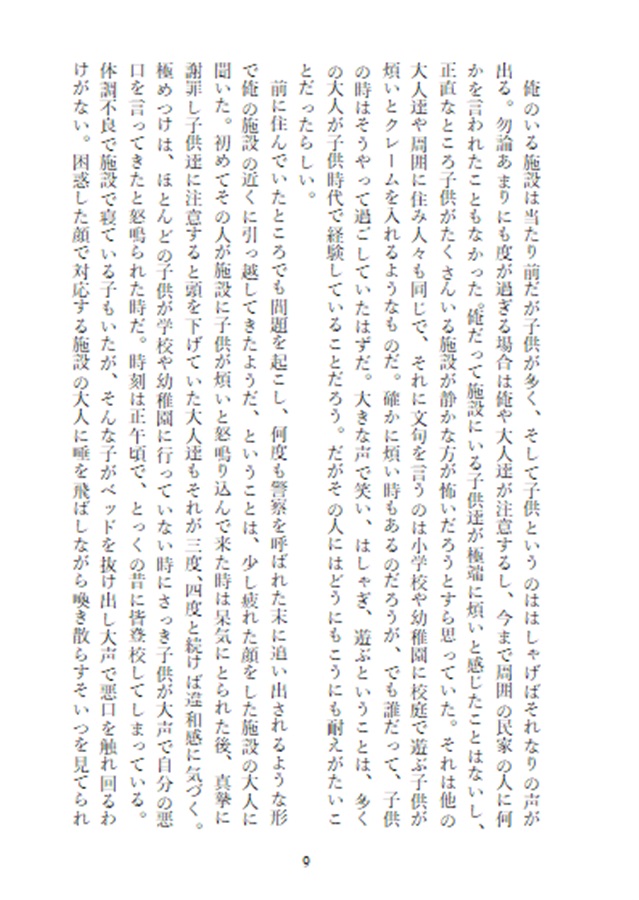 俺のいる施設は当たり前だが子供が多く、そして子供というのははしゃげばそれなりの声が
出る。勿論あまりにも度が過ぎる場合は俺や大人達が注意するし、今まで周囲の民家の人に何
かを言われたこともなかった。俺だって施設にいる子供達が極端に煩いと感じたことはないし、
正直なところ子供がたくさんいる施設が静かな方が怖いだろうとすら思っていた。それは他の
大人達や周囲に住み人々も同じで、それに文句を言うのは小学校や幼稚園に校庭で遊ぶ子供が
煩いとクレームを入れるようなものだ。確かに煩い時もあるのだろうが、でも誰だって、子供
の時はそうやって過ごしていたはずだ。大きな声で笑い、はしゃぎ、遊ぶということは、多く
の大人が子供時代で経験していることだろう。だがその人にはどうにもこうにも耐えがたいこ
とだったらしい。
前に住んでいたところでも問題を起こし、何度も警察を呼ばれた末に追い出されるような形
で俺の施設の近くに引っ越してきたようだ、ということは、少し疲れた顔をした施設の大人に
聞いた。初めてその人が施設に子供が煩いと怒鳴り込んで来た時は呆気にとられた後、真摯に
謝罪し子供達に注意すると頭を下げていた大人達もそれが三度、四度と続けば違和感に気づく。
極めつけは、ほとんどの子供が学校や幼稚園に行っていない時にさっき子供が大声で自分の悪
口を言ってきたと怒鳴られた時だ。時刻は正午頃で、とっくの昔に皆登校してしまっている。
体調不良で施設で寝ている子もいたが、そんな子がベッドを抜け出し大声で悪口を触れ回るわ
けがない。困惑した顔で対応する施設の大人に唾を飛ばしながら喚き散らすそいつを見てられ
9